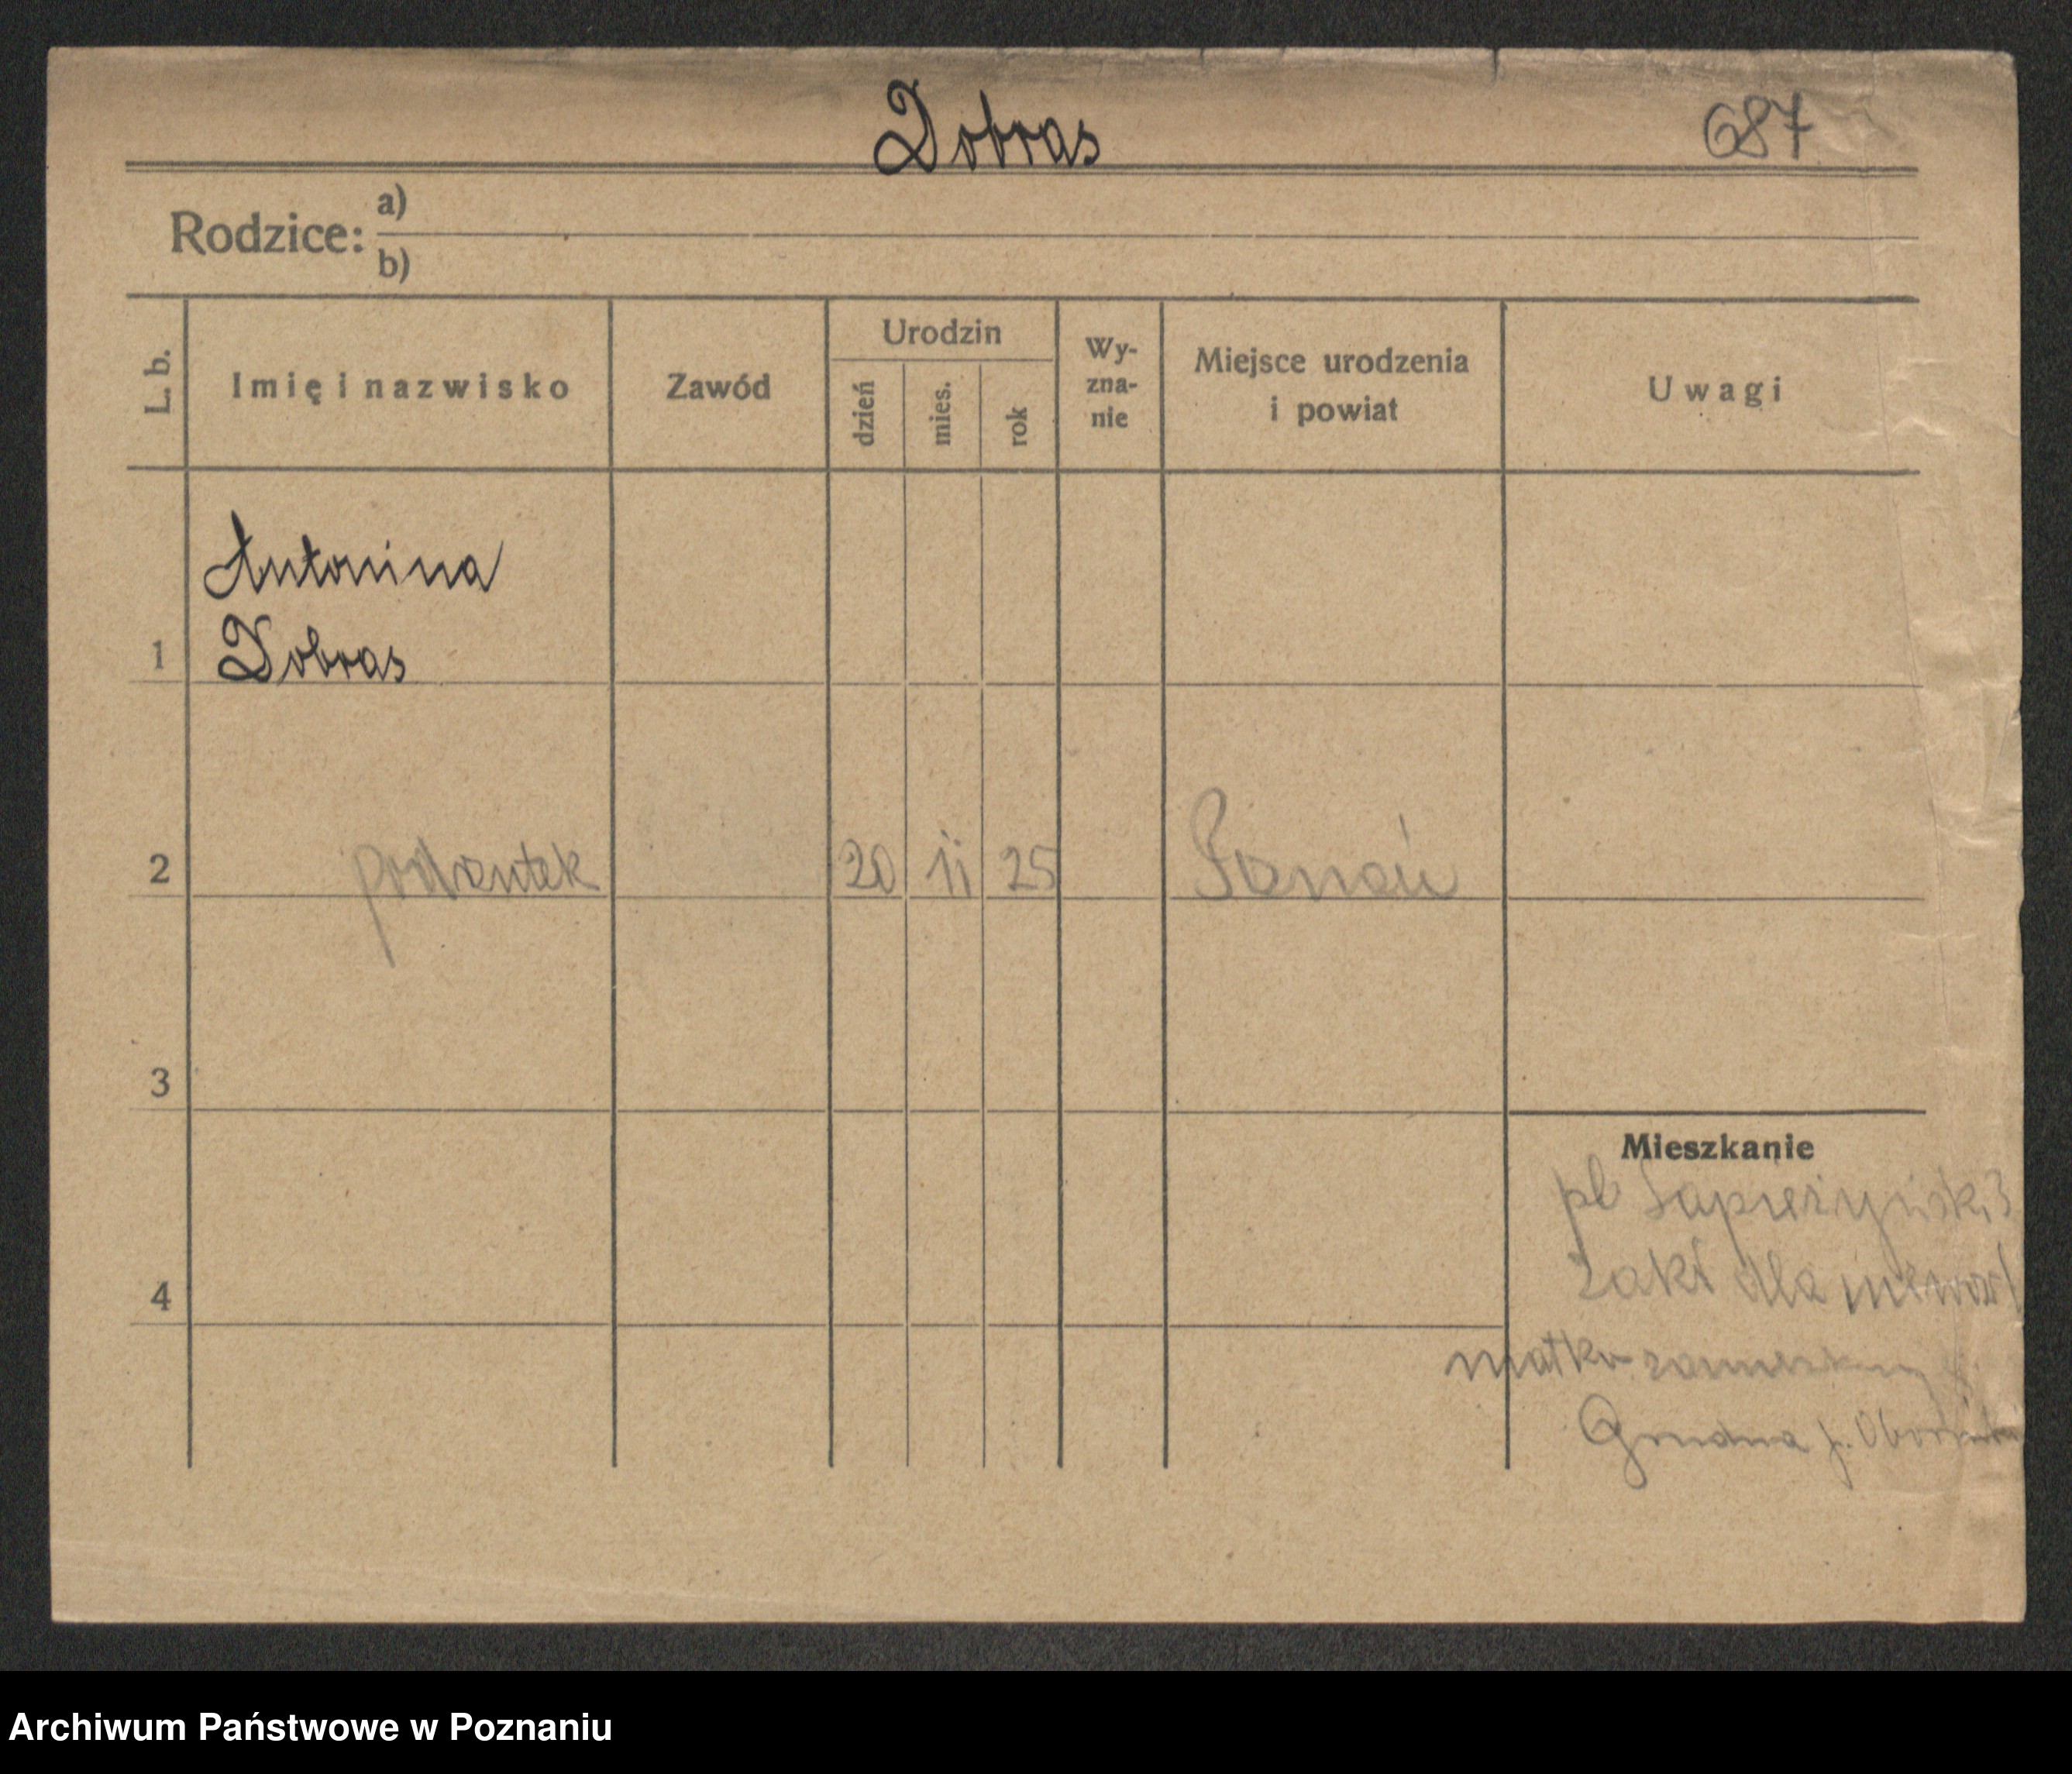 Dobras 687
Rodzice: a)
b)
L. b. Imię i nazwisko Zawód Urodzin dzień mies. rok Wy- zna- nie Miejsce urodzenia i powiat Uwagi
Antonina
1 Dobras
2 podrzutek 20 11 25 Poznań
3
Mieszkanie
pl Sapieżyński 3
4 Zakł dla
matka
Archiwum Państwowe w Poznaniu